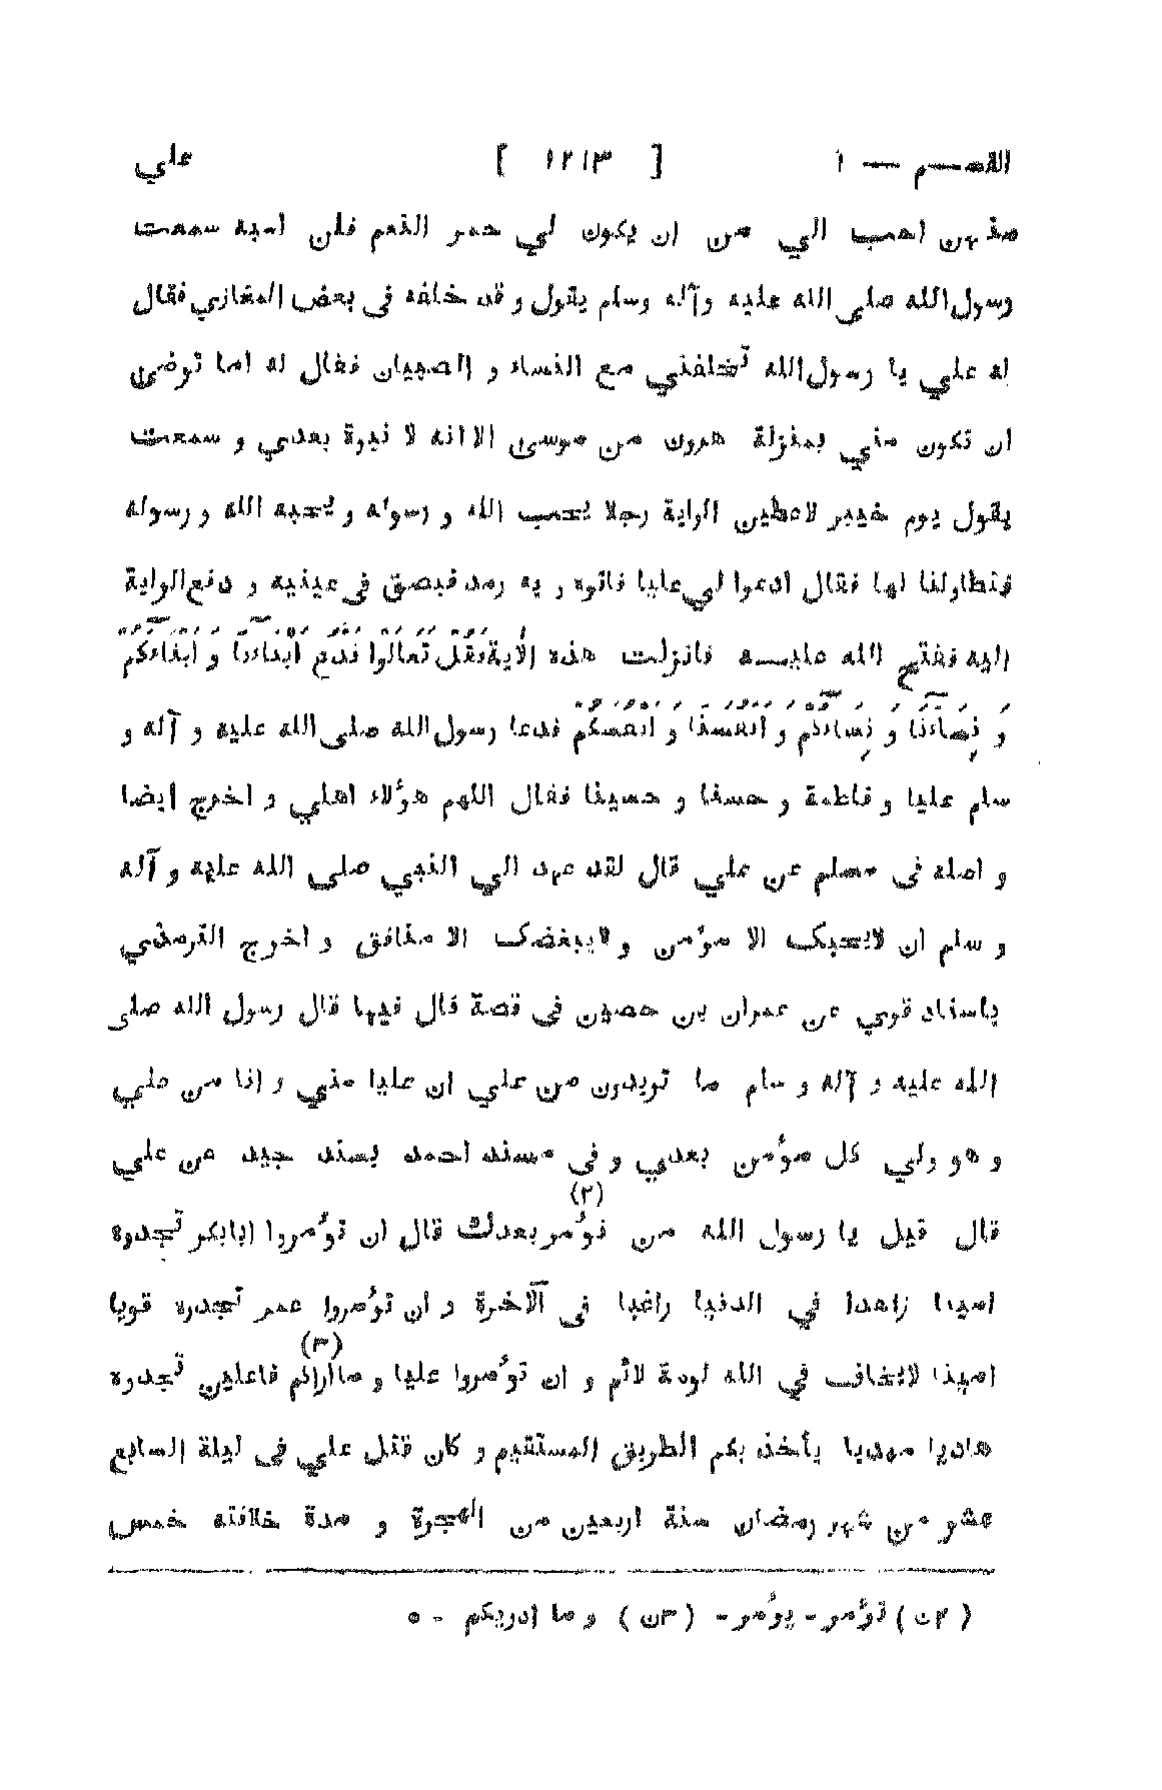 القسم — ١ [ ١٢١٣ ] علي
منهن احب الي من ان يكون لي حمر النعم فلن اسبه سمعت
رسول الله صلى الله عليه وآله وسلم يقول و قد خلفه فى بعض المغازي فقال
له علي يا رسول الله تخلفني مع النساء و الصبيان فقال له اما ترضى
ان تكون مني بمنزلة هرون من موسى الا انه لا نبوة بعدي و سمعت
يقول يوم خيبر لاعطين الراية رجلا يحب الله و رسوله و يحبه الله و رسوله
فتطاولنا لها فقال ادعوا لي عليا فاتوه و به رمد فبصق فى عينيه و دفع الراية
اليه ففتح الله عليــه فانزلت هذه الآية فَقُلْ تَعَالَوْا نَدْعُ اَبْنَاءَنَا وَ اَبْنَاءَكُمْ
وَ نِسَاءَنَا وَ نِسَاءَكُمْ وَ اَنْفُسَنَا وَ اَنْفُسَكُمْ فدعا رسول الله صلى الله عليه و آله و
سلم عليا و فاطمة و حسنا و حسينا فقال اللهم هؤلاء اهلي و اخرج ايضا
و اصله فى مسلم عن علي قال لقد عهد الي النبي صلى الله عليه و آله
و سلم ان لايحبك الا مؤمن و لايبغضك الا منافق و اخرج الترمذي
باسناد قوي عن عمران بن حصين فى قصة قال فيها قال رسول الله صلى
الله عليه و آله و سلم ما تريدون من علي ان عليا مني و انا من علي
و هو ولي كل مؤمن بعدي و فى مسند احمد بسند جيد عن علي
قال قيل يا رسول الله من نؤمر (٢) بعدك قال ان تؤمروا ابابكر تجدوه
امينا زاهدا في الدنيا راغبا فى الآخرة و ان تؤمروا عمر تجدوه قويا
امينا لايخاف في الله لومة لائم و ان تؤمروا عليا و ما اراكم (٣) فاعلين تجدوه
هاديا مهديا يأخذ بكم الطريق المستقيم و كان قتل علي فى ليلة السابع
عشر من شهر رمضان سنة اربعين من الهجرة و مدة خلافته خمس
( ٢ن ) تؤمر - يؤمر - ( ٣ن ) و ما ادريكم - ٥